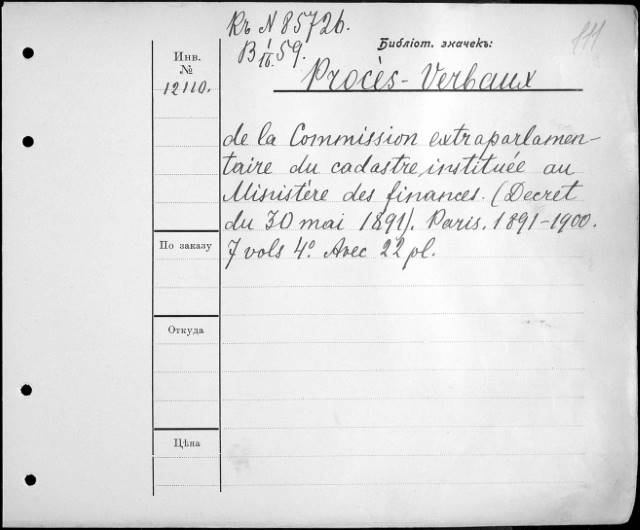 Къ N 85726.
B I/IV 59.
Библіот. значекъ:
Инв.
№
12110.
Procès-Verbaux
de la Commission extraparlamen-
taire du cadastre, instituée au
Ministère des finances. (Decret
du 30 mai 1891). Paris. 1891-1900.
7 vols 4°. Avec 22 pl.
По заказу
Откуда
Цѣна